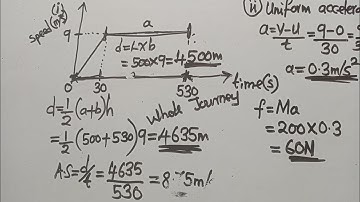 (i)
speed(m/s)
a
9
d=L×b
=500×9=4500m
0 30 530 time(s)
d=½(a+b)h
whole Journey
=½(500+530)9=4635m
A.S=d/t=4635/530=8.75m/
(ii) Uniform accelera
a=v-u/t=9-0/30=9
a=0.3m/s²
f=Ma
=200×0.3
=60N